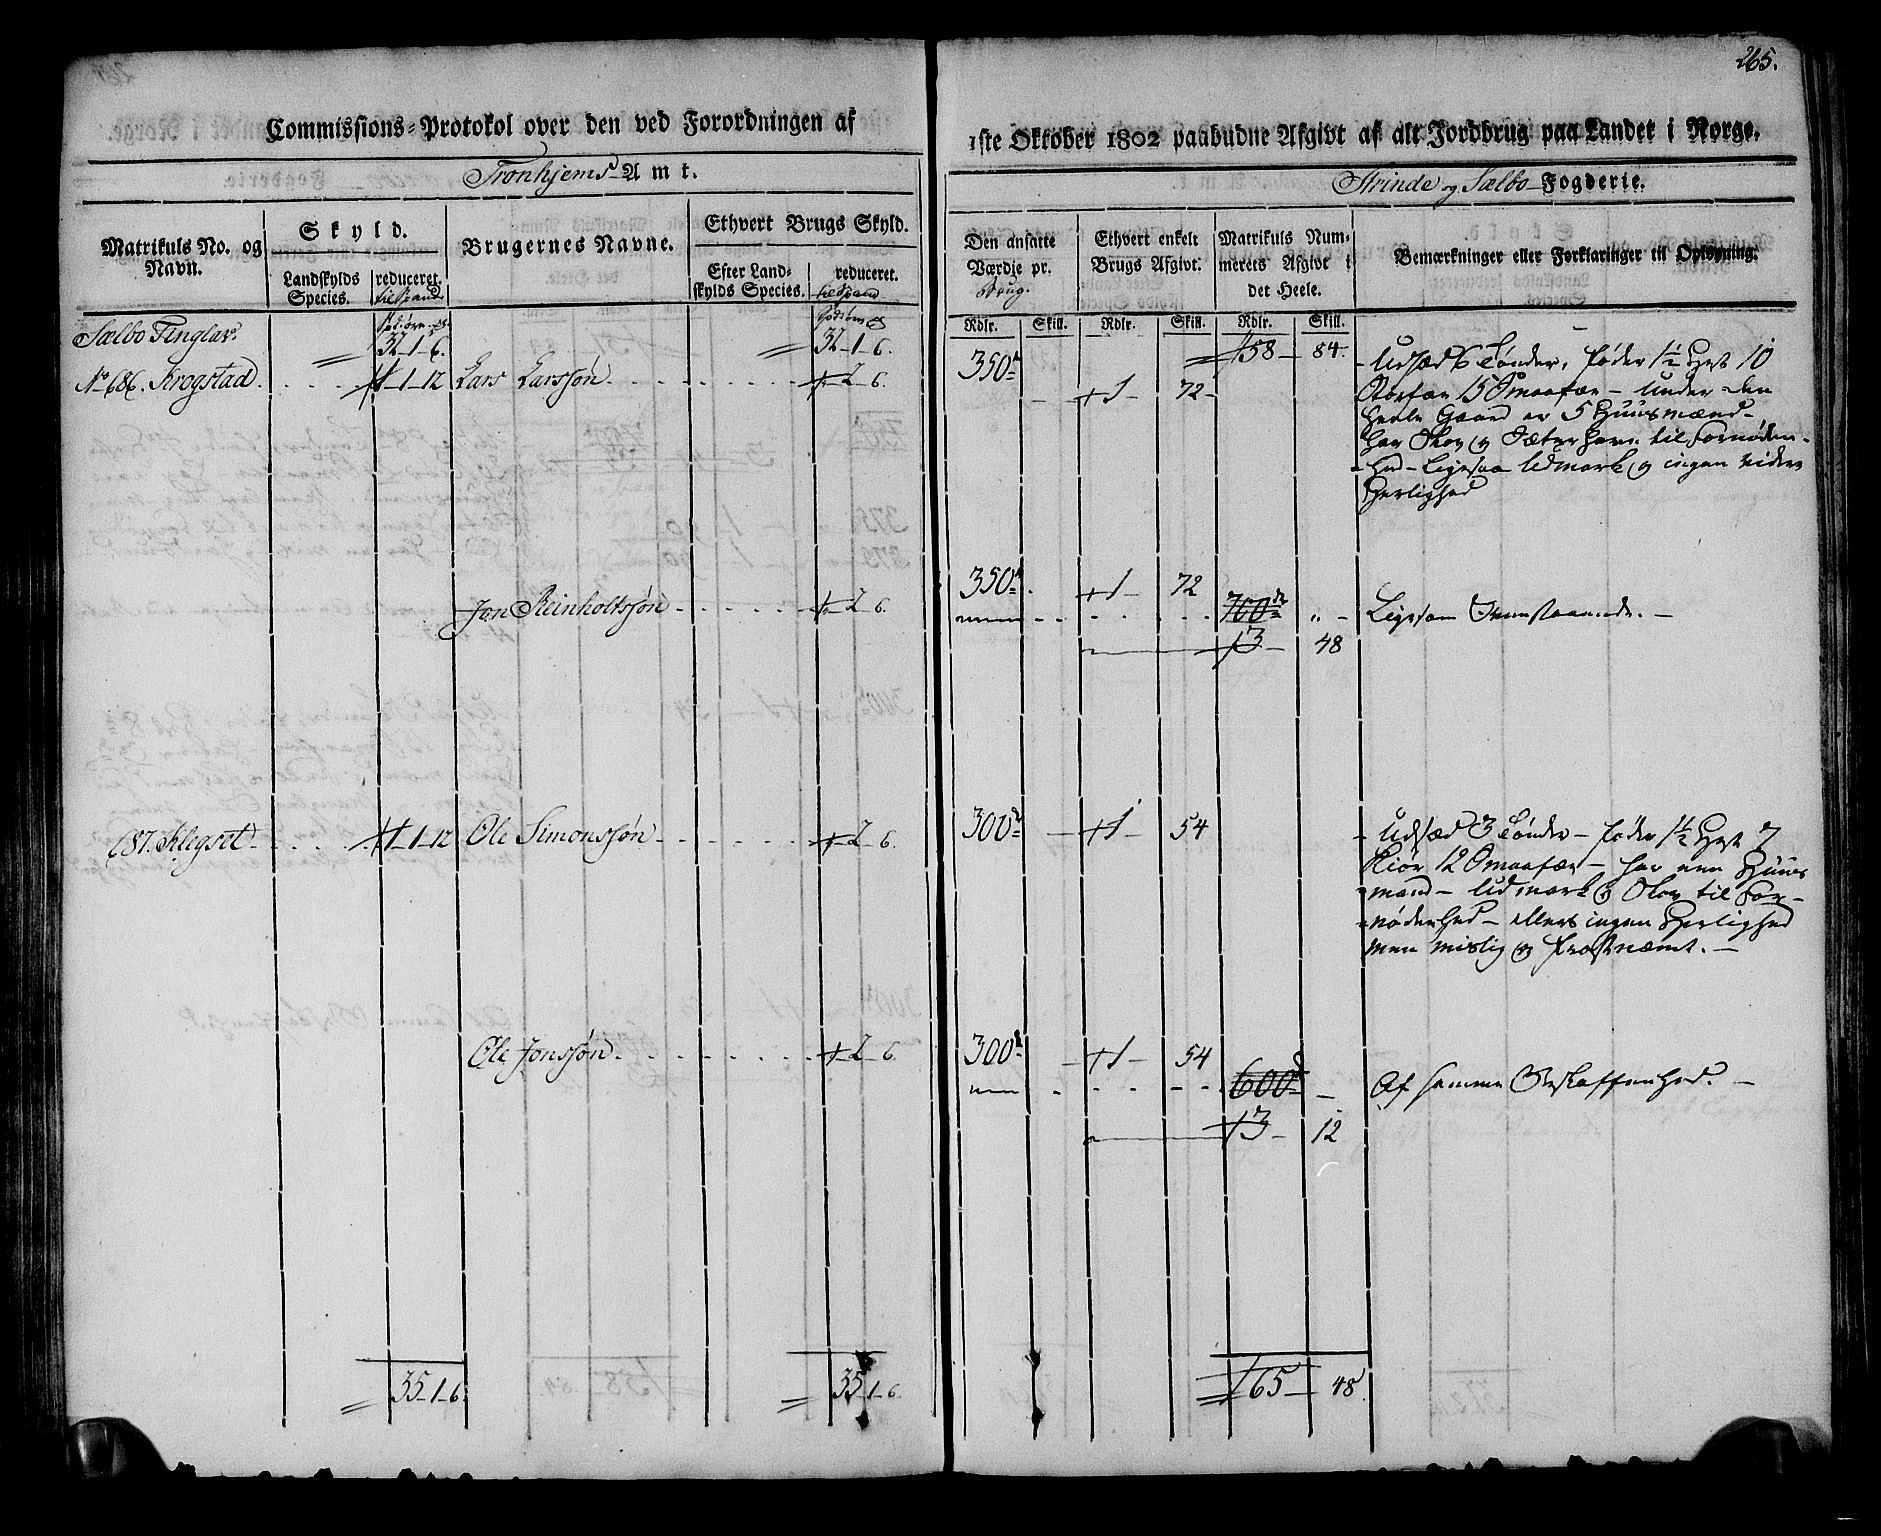 265.
Commissions-Protokol over den ved Forordningen af
1ste Oktober 1802 paabudne Afgivt af alt Jordbrug paa Landet i Norge.
Tronhjems Amt.
Strinde og Sælbo Fogderie.
Matrikuls No. og Navn.
Skyld.
Landskylds Species.
reduceret.
Brugernes Navne.
Ethvert Brugs Skyld.
Efter Landskylds Species.
reduceret.
Den ansatte Værdje pr. Brug.
Ethvert enkelt Brugs Afgivt.
Matrikuls Nummerets Afgivt i det Heele.
Bemærkninger eller Forklaringer til Oplysning.
Rdlr. Skill. Rdlr. Skill. Rdlr. Skill.
Sælbo Tinglav.
32-1-6. 32-1-6. 158-84.
No 686. Krogstad 1-1-12 Lars Larssøn 2-6. 350 1-72-
Udsæd 6 Tønder, føder 1½ Hest 10
Storfæe 15 Smaafæe - Under den
heele Gaard er 5 Huusmænd-
har Skov og Sæterhavn til Fornøden-
hed - Ligesaa Udmark og ingen videre
Herlighed
Jon Reinholtssøn 2-6. 350 1-72
700 " -
3-48
Ligesom Ovenstaaende.-
687. Klegset 1-1-12 Ole Simonssøn 2-6. 300 1-54
Udsæd 3 Tønder - føder 1½ Hest 7
Kiør 12 Smaafæe - har een Huus
mand - Udmark og Skov til For-
nødenhed - ellers ingen Herlighed
men mislig og frostnæmt.-
Ole Jonssøn 2-6. 300 1-54
600 -
3-12
Af samme Beskaffenhed.-
35-1-6. 35-1-6. 165-48.